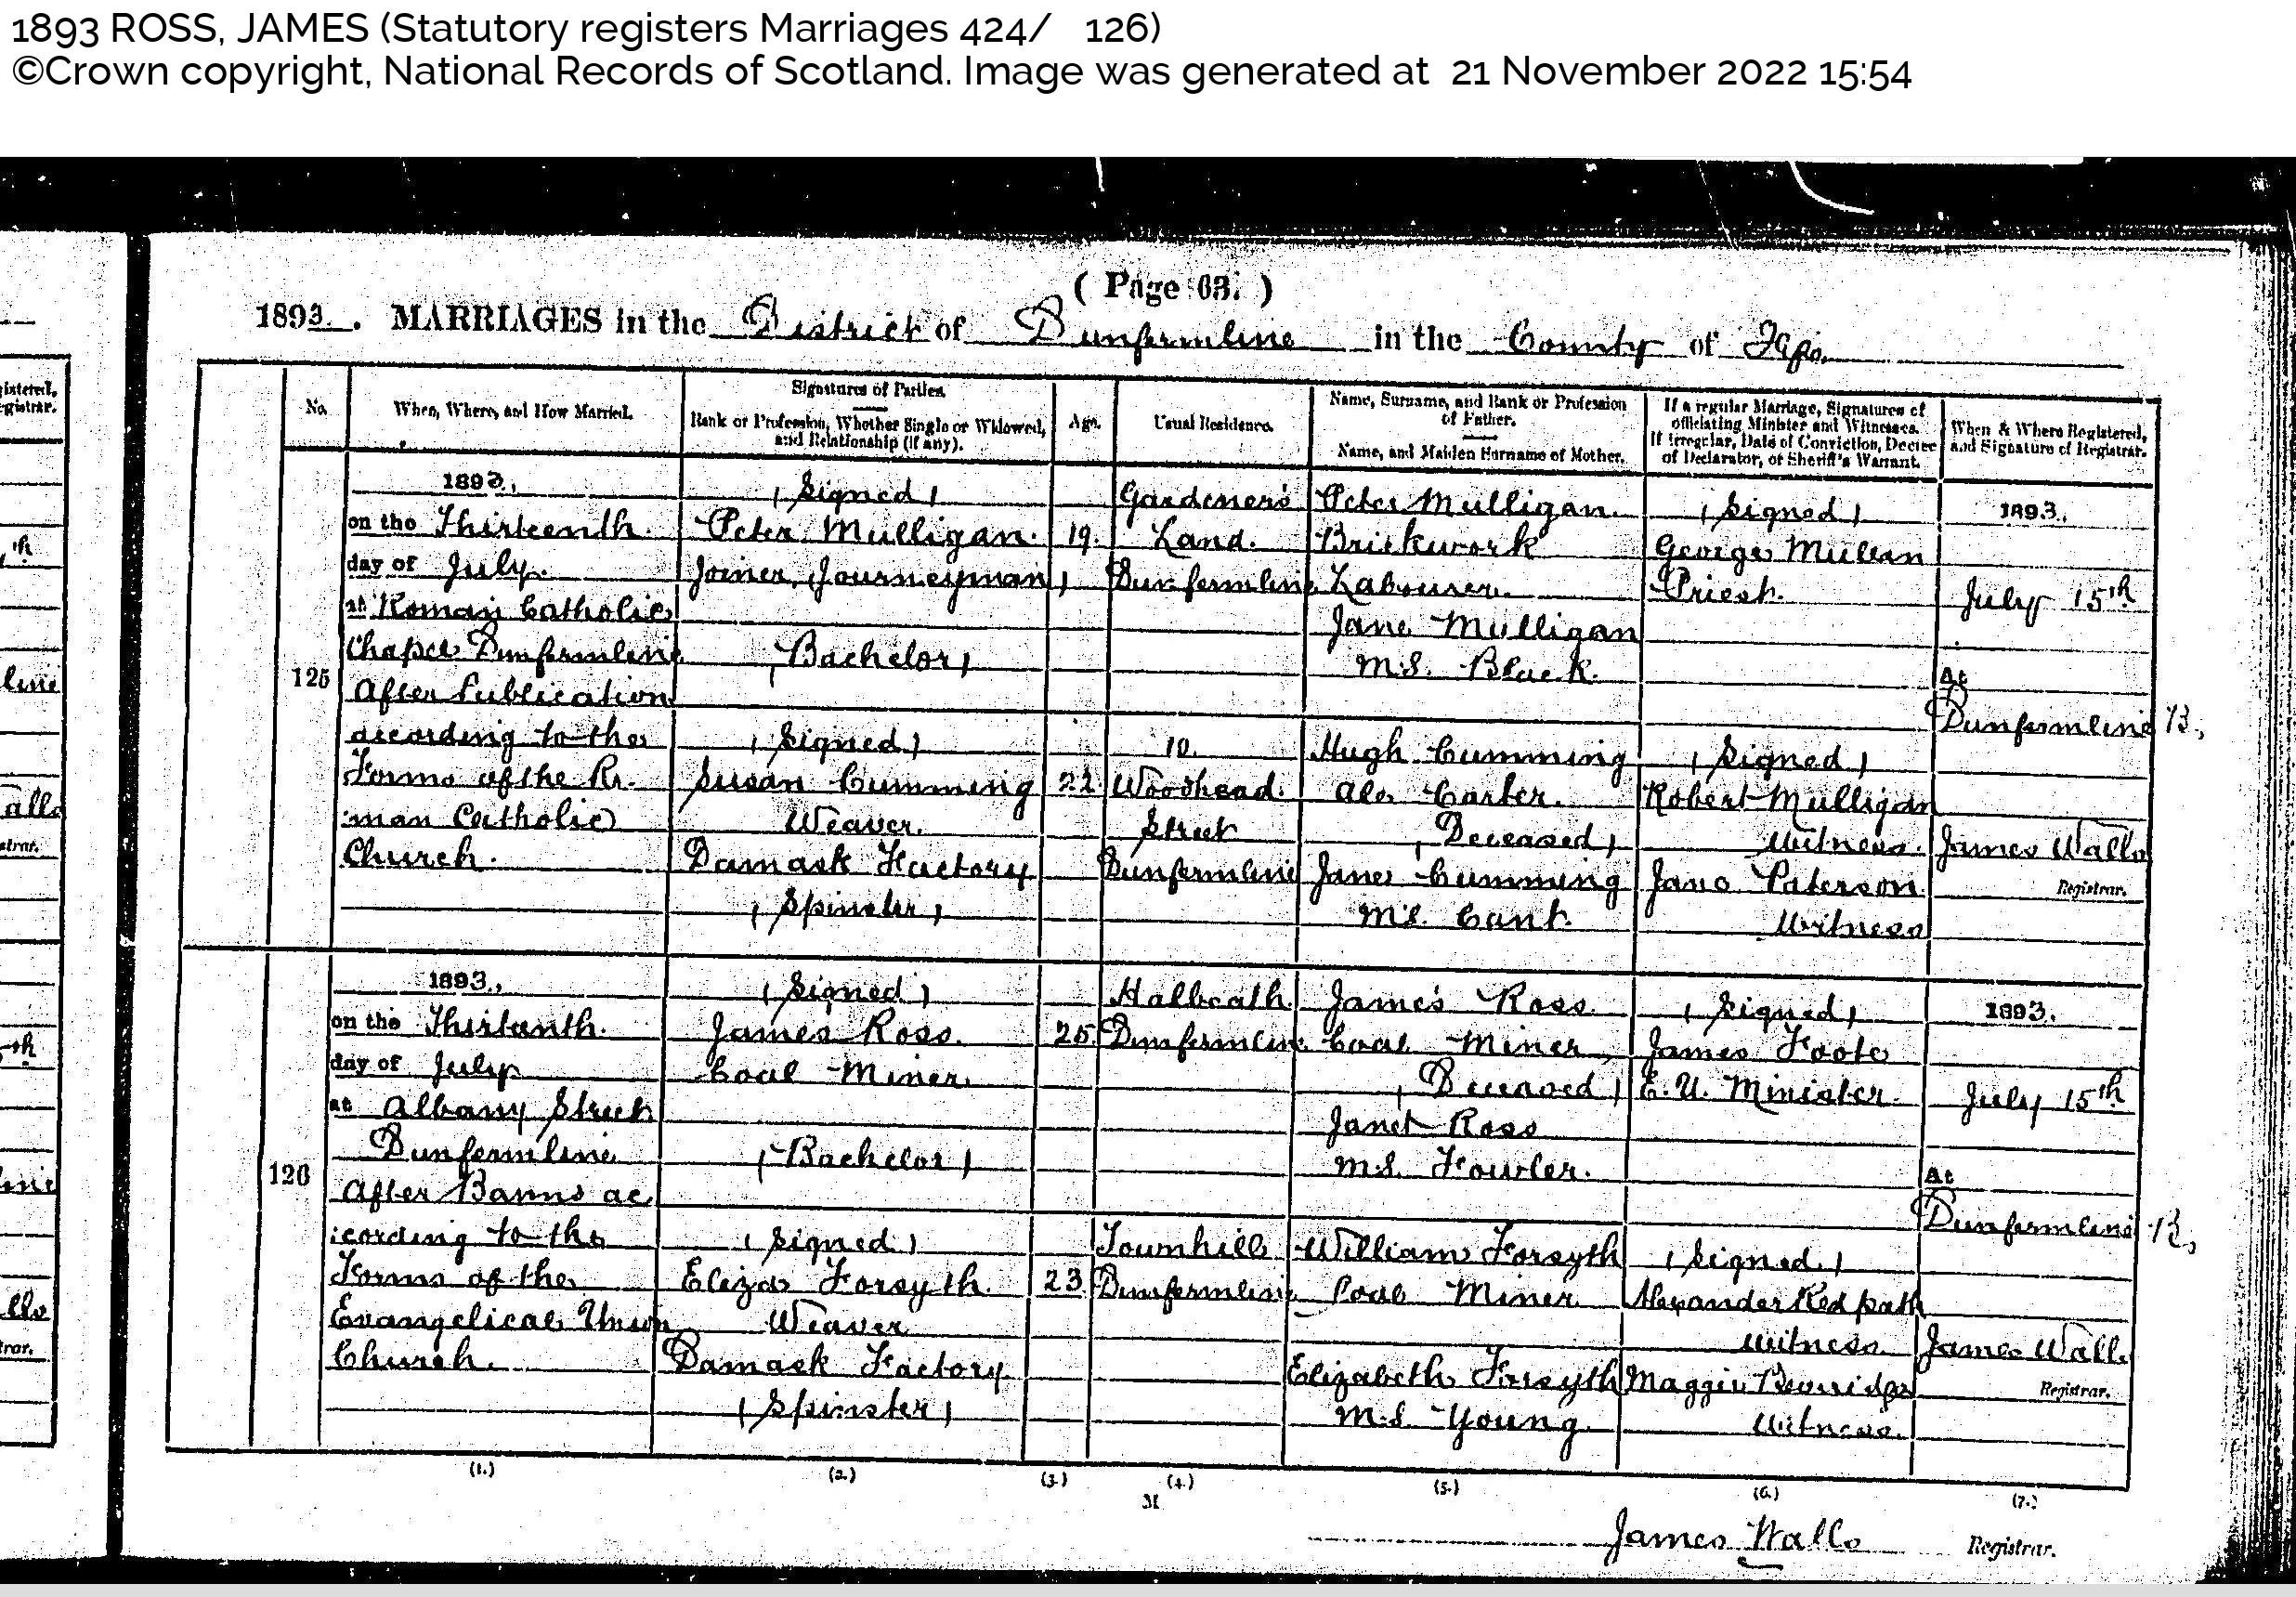 1893 ROSS, JAMES (Statutory registers Marriages 424/ 126)
©Crown copyright, National Records of Scotland. Image was generated at 21 November 2022 15:54
( Page 63. )
1893. MARRIAGES in the District of Dunfermline in the County of Fife
No.
When, Where, and How Married.
Signatures of Parties.
Rank or Profession, Whether Single or Widowed,
and Relationship (if any).
Age.
Usual Residence.
Name, Surname, and Rank or Profession
of Father.
Name, and Maiden Surname of Mother.
If a regular Marriage, Signatures of
officiating Minister and Witnesses.
If irregular, Date of Conviction, Decree
of Declarator, or Sheriff's Warrant.
When & Where Registered,
and Signature of Registrar.
125
1893,
on the Thirteenth.
day of July.
at Roman Catholic
Chapel Dunfermline
After Publication
according to the
Forms of the Ro-
:man Catholic
Church.
(Signed)
Peter Mulligan.
Joiner, (Journeyman)
(Bachelor)
(Signed)
Susan Cumming
Weaver.
Damask Factory
(Spinster)
19.
22.
Gardener's
Land.
Dunfermline
10.
Woodhead.
Street
Dunfermline
Peter Mulligan.
Brickwork
Labourer.
Jane Mulligan
M.S. Black.
Hugh Cumming
Ale Carter.
(Deceased)
Jane Cumming
M.S. Cant.
(Signed)
George Mullan
Priest.
(Signed)
Robert Mulligan
Witness.
Jane Paterson
Witness
1893.
July 15th
At
Dunfermline
James Walls
Registrar.
126
1893.,
on the Thirteenth.
day of July
at Albany Street
Dunfermline
After Banns ac
:cording to the
Forms of the
Evangelical Union
Church.
(Signed)
James Ross.
Coal Miner.
(Bachelor)
(Signed)
Eliza Forsyth.
Weaver
Damask Factory.
(Spinster)
25.
23
Halbeath.
Dunfermline
Townhill
Dunfermline
James Ross.
Coal Miner,
(Deceased)
Janet Ross
M.S. Fowler.
William Forsyth
Coal Miner
Elizabeth Forsyth
M.S. Young.
(Signed)
James Foote
E.U. Minister.
(Signed)
Alexander Redpath
Witness.
Maggie Beveridge
Witness.
1893.
July 15th
At
Dunfermline
James Walls
Registrar.
(1.)
(2.)
(3.)
(4.)
(5.)
(6.)
(7.)
M
James Walls Registrar.